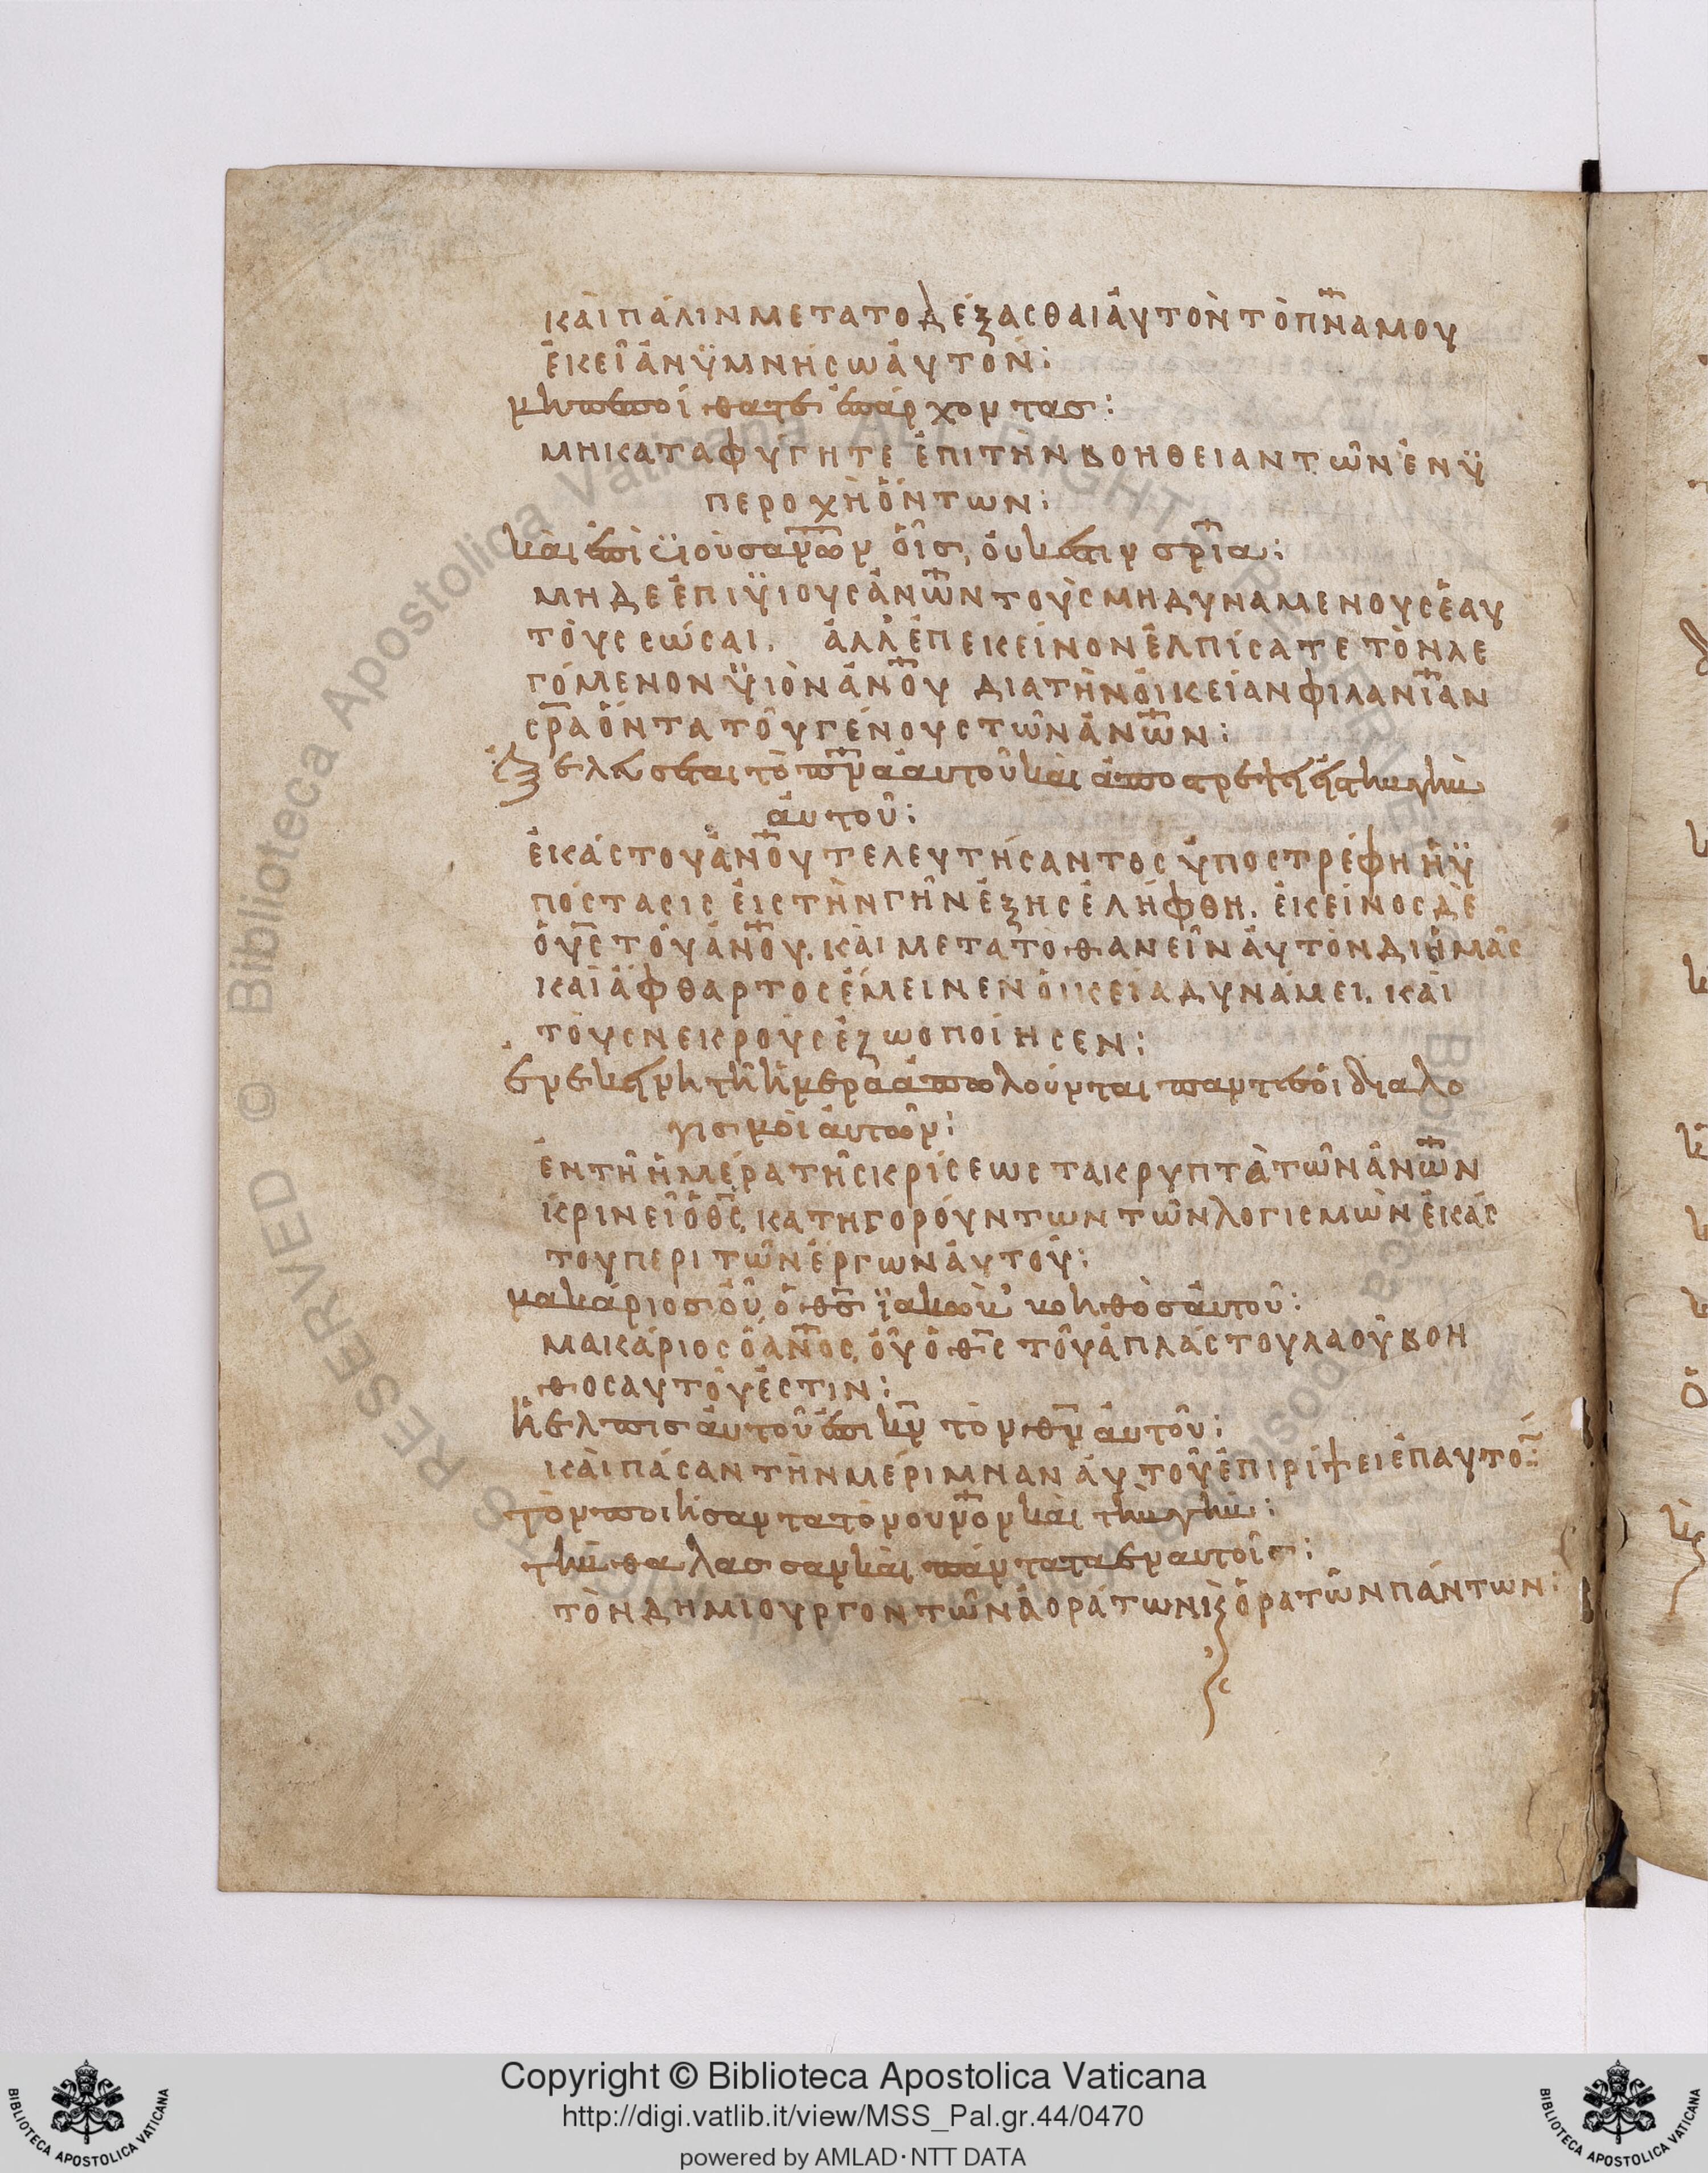 καὶ πάλιν μετα το δέξασθαι ἀυτὸν τὸ πνα μου
ἐκεῖ ἀνϋμνήσω ἀυτόν:
μὴ πεποίθατε ἐπάρχοντασ:
μη καταφύγητε ἐπι τὴν βοηθειαν τῶν ἐν ϋ
περοχὴ ὄντων:
καὶ ἐπὶ ϋιοὺσ ανων, ὅισ, ὀυκ ἔστιν σρια:
μηδε ἐπι ϋιους ἀνων τοὺς μη δυναμενους ἑαυ
τὸυς σώσαι. ἀλλ' ἐπ εκείνον ἐλπίσατε τὸν λε
γόμενον ϋιὸν ἀνου δια τὴν ὀικείαν φιλανιαν
σρα ὄντα τοῦ γένους τῶν ἀνων:
ἐξελεύσεται τὸ πνα ἀυτοῦ καὶ ἀποστρέψει ἐισ τὴν γὴν
ἀυτοῦ:
ἑκάστου ἀνου τελευτήσαντος ὑποστρέφη ἡ ϋ
πόστασις ἐις τὴν γῆν ἐξ ης ἐλήφθη. ἐκείνος δὲ
ὁ υς τοῦ ἀνου, καὶ μετα τὸ θανεῖν ἀυτὸν δι ἡμᾶς
καὶ ἄφθαρτος ἔμεινεν ὀικεία δυνάμει. καὶ
τὸυς νεκροὺς ἐζωοποίησεν:
ἐν ἐκείνη τῆ ἡμερᾶ ἀπολοῦνται παντεσ ὁι διαλο
γισμὸι ἀυτῶν:
ἐν τῆ ἡμέρα τῆς κρίσεως τα κρυπτὰ τῶν ἀνων
κρινεῖ ὁ θς, κατηγορόυντων τῶν λογισμὼν ἑκάσ
του περι τῶν ἔργων ἀυτοῦ:
μακάριοσ ὁῦ, ὁ θσ ϊακὼβ βοηθὸσ ἀυτοῦ:
μακάριος ὁ ανος, ὁῦ ὁ θς τοῦ ἀπλάστου λαοῦ βοη
θος αυτοῦ ἐστιν:
ἡ ελπισ ἀυτοῦ ἐπι κν τὸν θν ἀυτοῦ:
καὶ πάσαν τὴν μέριμναν ἀυτοῦ ἐπιρίψει ἐπ αυτο:
τὸν ποιήσαντα τὸν ουνον καὶ τὴν γὴν:
τὴν θαλασσαν καὶ πάντα τα ἐν αυτοῖσ:
τὸν δημιουργον τῶν ἀοράτων ϗ ὁρατῶν πάντων:
Copyright © Biblioteca Apostolica Vaticana
http://digi.vatlib.it/view/MSS_Pal.gr.44/0470
powered by AMLAD·NTT DATA
BIBLIOTECA APOSTOLICA VATICANA
BIBLIOTECA APOSTOLICA VATICANA